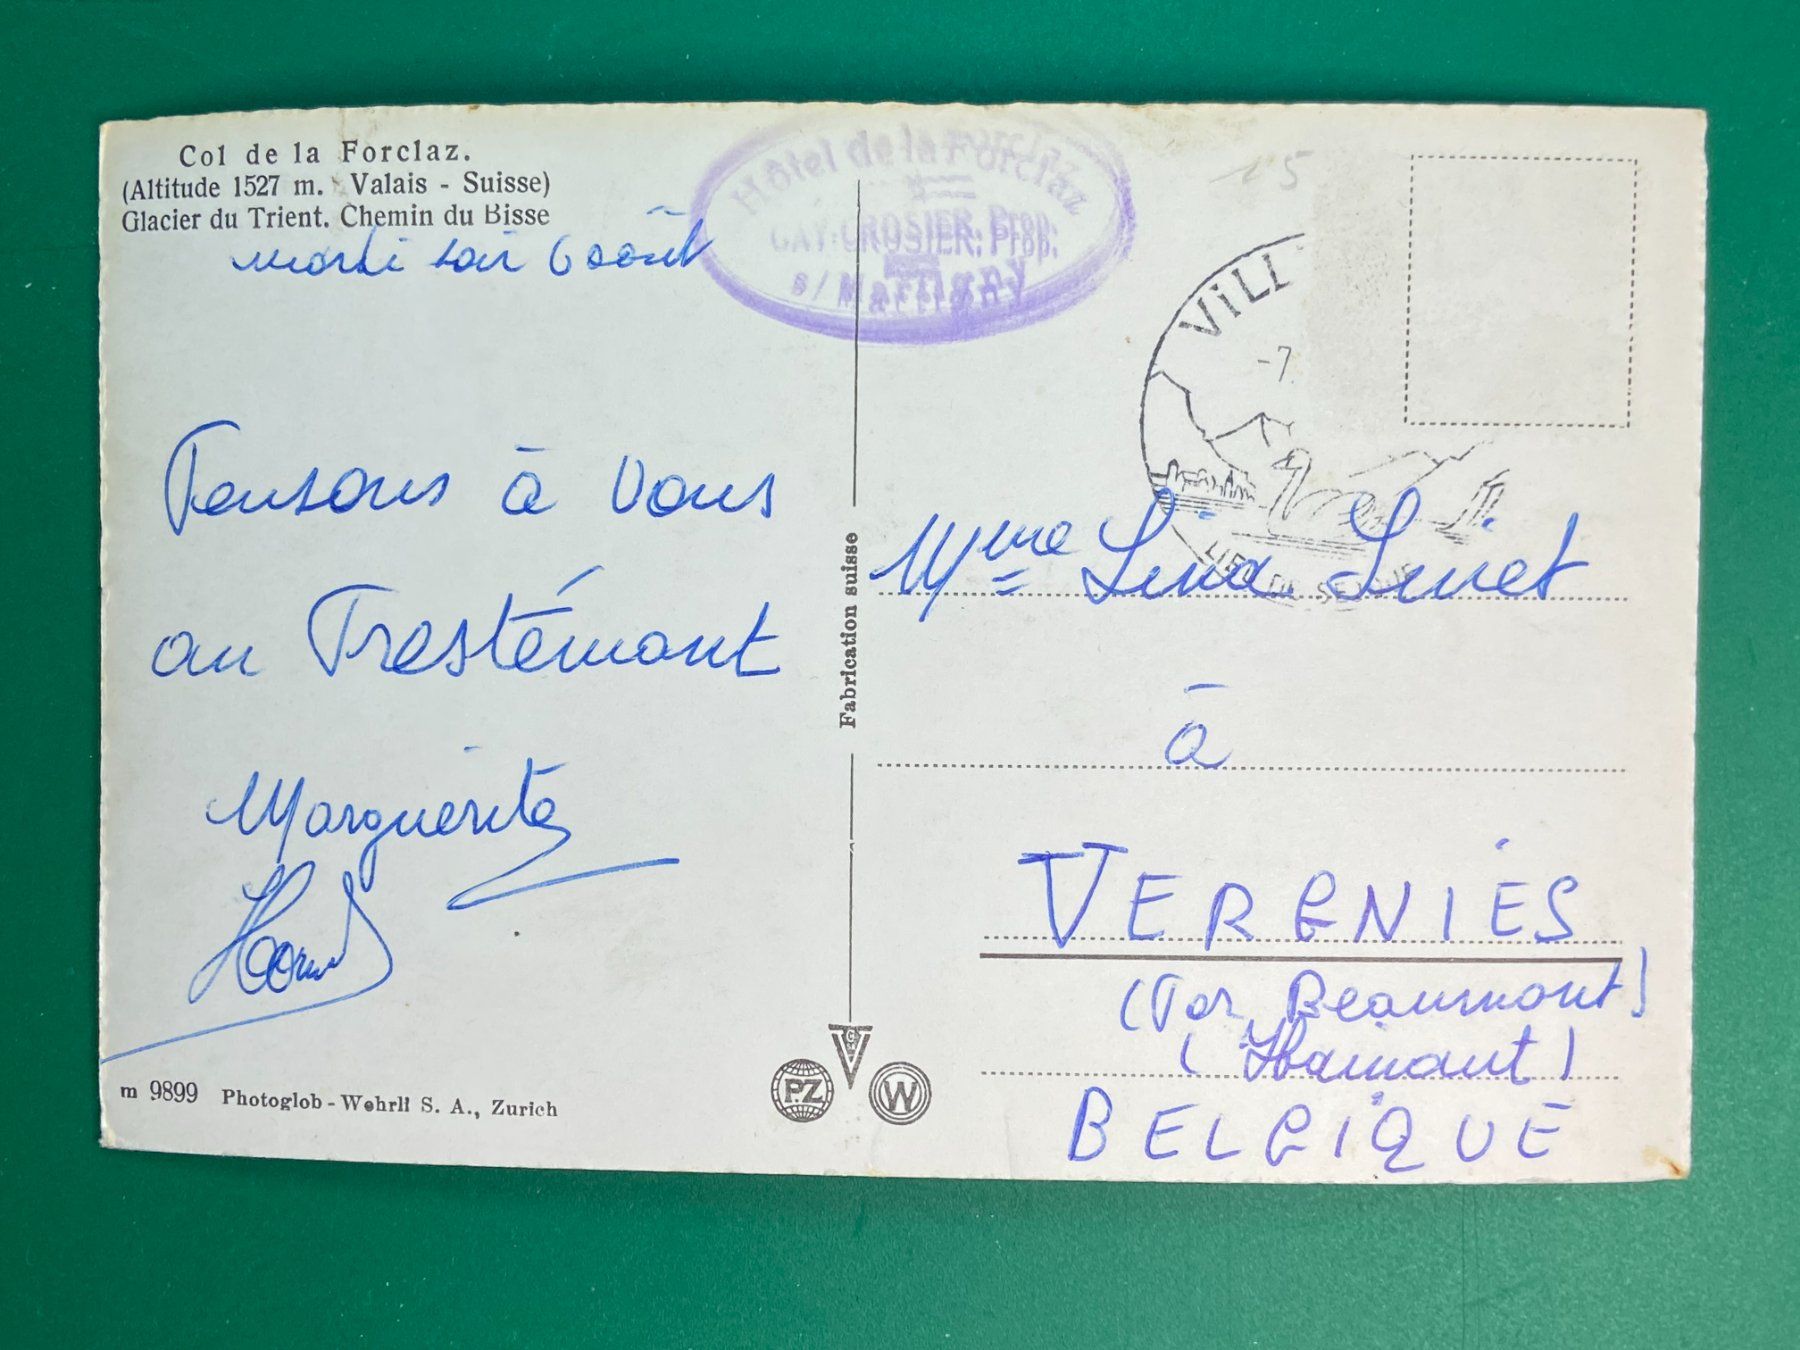 Col de la Forclaz.
(Altitude 1527 m. Valais - Suisse)
Glacier du Trient. Chemin du Bisse
mardi soir 6 août
Hôtel de la Forclaz
GAY-CROSIER. Prop.
s/ Martigny
15
VILL
-7.
LIEU DE SEJOUR
Pensons à vous
au Trestémont
Marguerite
Fabrication suisse
Mme Lina Linet
à
VERGNIES
(Par Beaumont)
(Hainaut)
BELGIQUE
m 9899 Photoglob-Wehrli S. A., Zurich
PZ
W